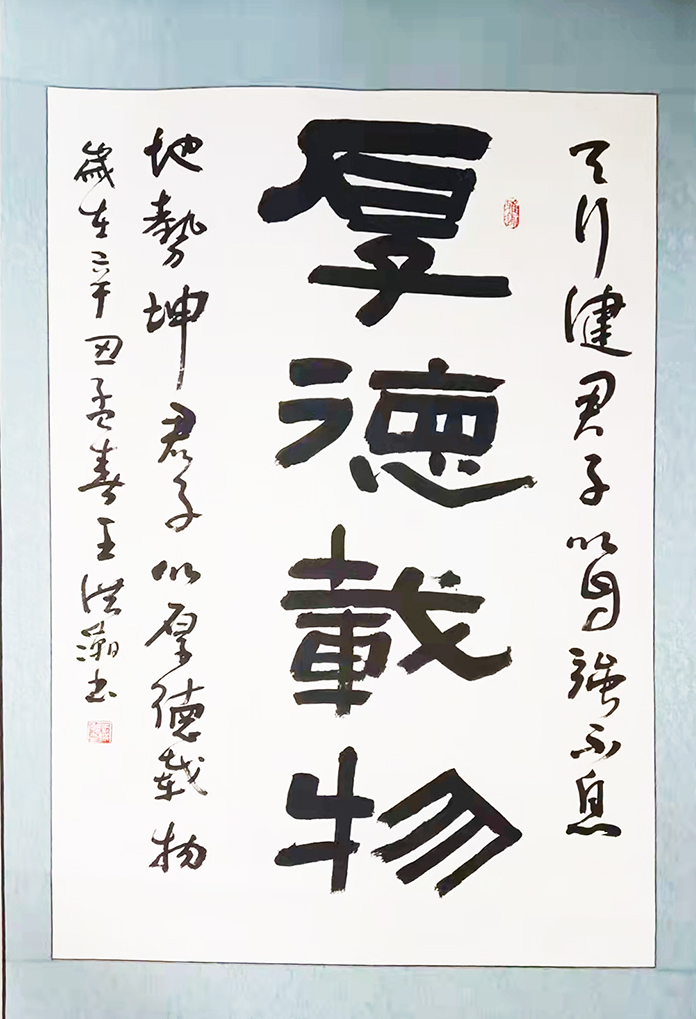 天行健君子以自強不息
厚德載物
地勢坤君子以厚德載物
歲在辛丑孟春王洪瀚书